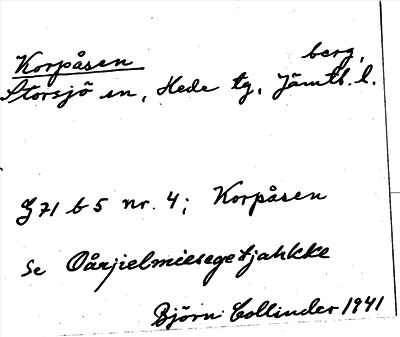 Korpåsen berg,
Storsjö sn, Hede tg, Jämtl. l.
J 71 b 5 nr. 4; Korpåsen
Se Oårjielmiesegetjahkke
Björn Collinder 1941